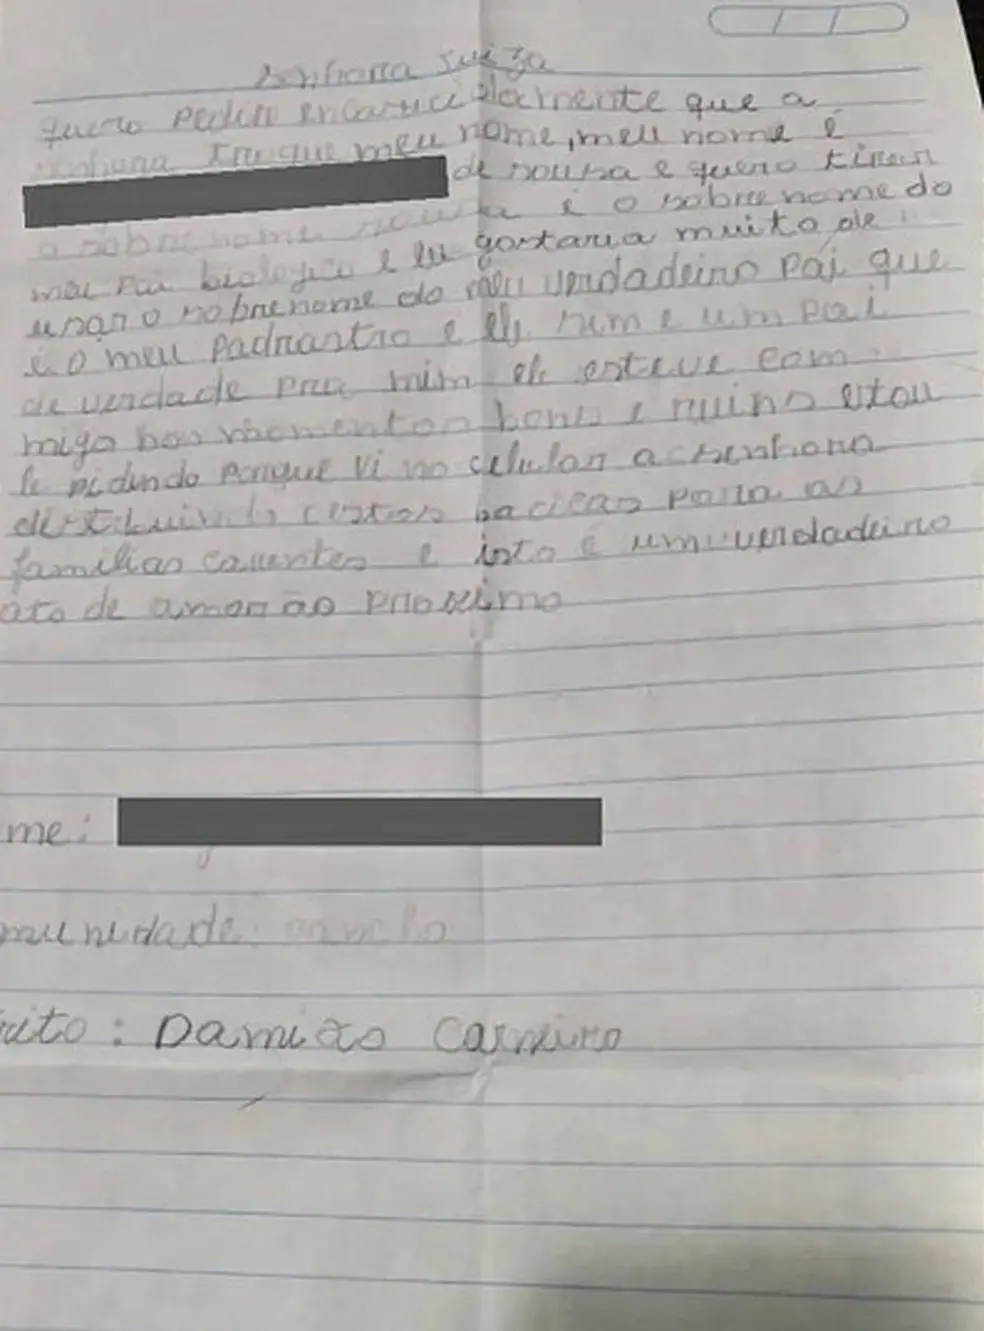 senhora juiza
quero pedir encarecidademente que a
senhora troque meu nome, meu nome é
de sousa e quero tirar
o sobrenome sousa é o sobrenome do
meu pai biologico e eu gostaria muito de
usar o sobrenome do meu verdadeiro pai que
é o meu padrastro e ele sim é um pai
de verdade pra mim ele esteve com
migo nos momentos bons e ruins estou
le pidindo porque vi no celular a senhora
distibuindo cestas bacicas para as
familias carentes e isto é um verdadeiro
ato de amor ao proximo
me:
munidade:
rito: Damião Carneiro